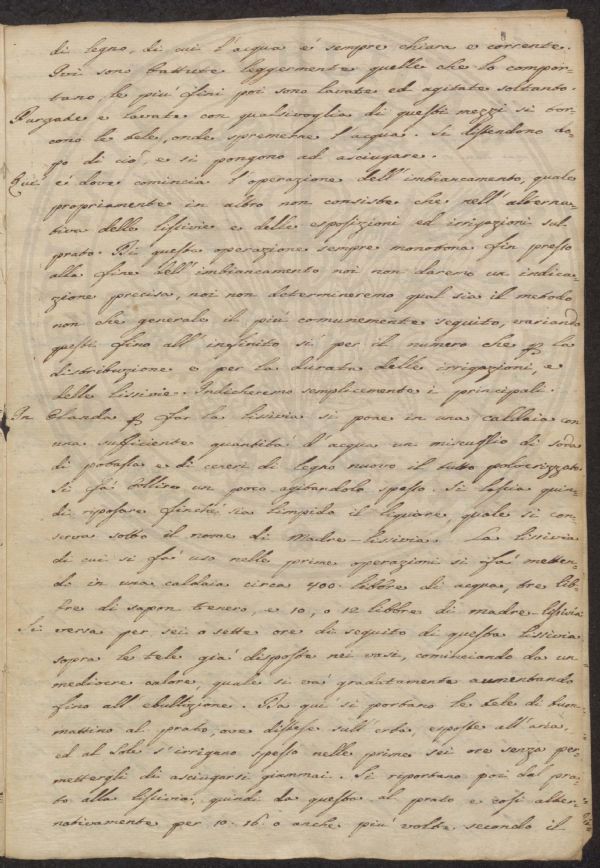 di legno, di cui l'acqua é sempre chiara e corrente.
Ivi sono battute leggermente quelle che lo compor-
tano, le piú fini poi sono lavate ed agitate soltanto.
Purgade e lavate con qualsivoglia di questi mezzi si tor-
cono le tele, onde spremerne l'acqua. Si distendono do-
po di ció, e si pongono ad asciugare.
Qui é dove comincia l'operazione dell'imbiancamento, quale
propriamente in altro non consiste che nell'alterna-
tiva delle lissivie e delle esposizioni ed irrigazioni sul
prato. Di questa operazione sempre monotona fin presso
alla fine dell'imbiancamento noi non daremo un indica-
zione precisa, noi non determineremo qual sia il metodo
non che generale il piú comunemente seguito, variando
questi fino all'infinito sí per il numero che p la
distribuzione e per la durata delle irrigazioni, e
delle lissivie. Indicheremo semplicemente i principali.
In Olanda p far la lissivia si pone in una caldaia con
una sufficiente quantitá d'acqua un miscuglio di soda
di potassa e di ceneri di legno nuovo il tutto polverizzato.
Si fá bollire un poco agitandolo spesso. Si lascia quin-
di riposare finché sia limpido il liquore, quale si con-
serva sotto il nome di Madre-lissivia. La lissivia
di cui si fá uso nelle prime operazioni si fá metten-
do in una caldaia circa 400 libbre di acqua, tre lib-
bre di sapon tenero, e 10, o 12 libbre di madre lissivia
Si versa per sei o sette ore di seguito di questa lissivia
sopra le tele giá disposte nei vasi, cominciando da un
mediocre calore, quale si vá gradatamente aumentando
fino all'ebullizione. Da qui si portano le tele di buon
mattino al prato, ove distese sull'erba, esposte all'aria,
ed al Sole s'irrigano spesso nelle prime sei ore senza per-
mettergli di asciugarsi giammai. Si riportano poi dal pra-
to alla lissivia, quindi da questa al prato e cosí alter-
nativamente per 10. 16. o anche piú volte secondo il